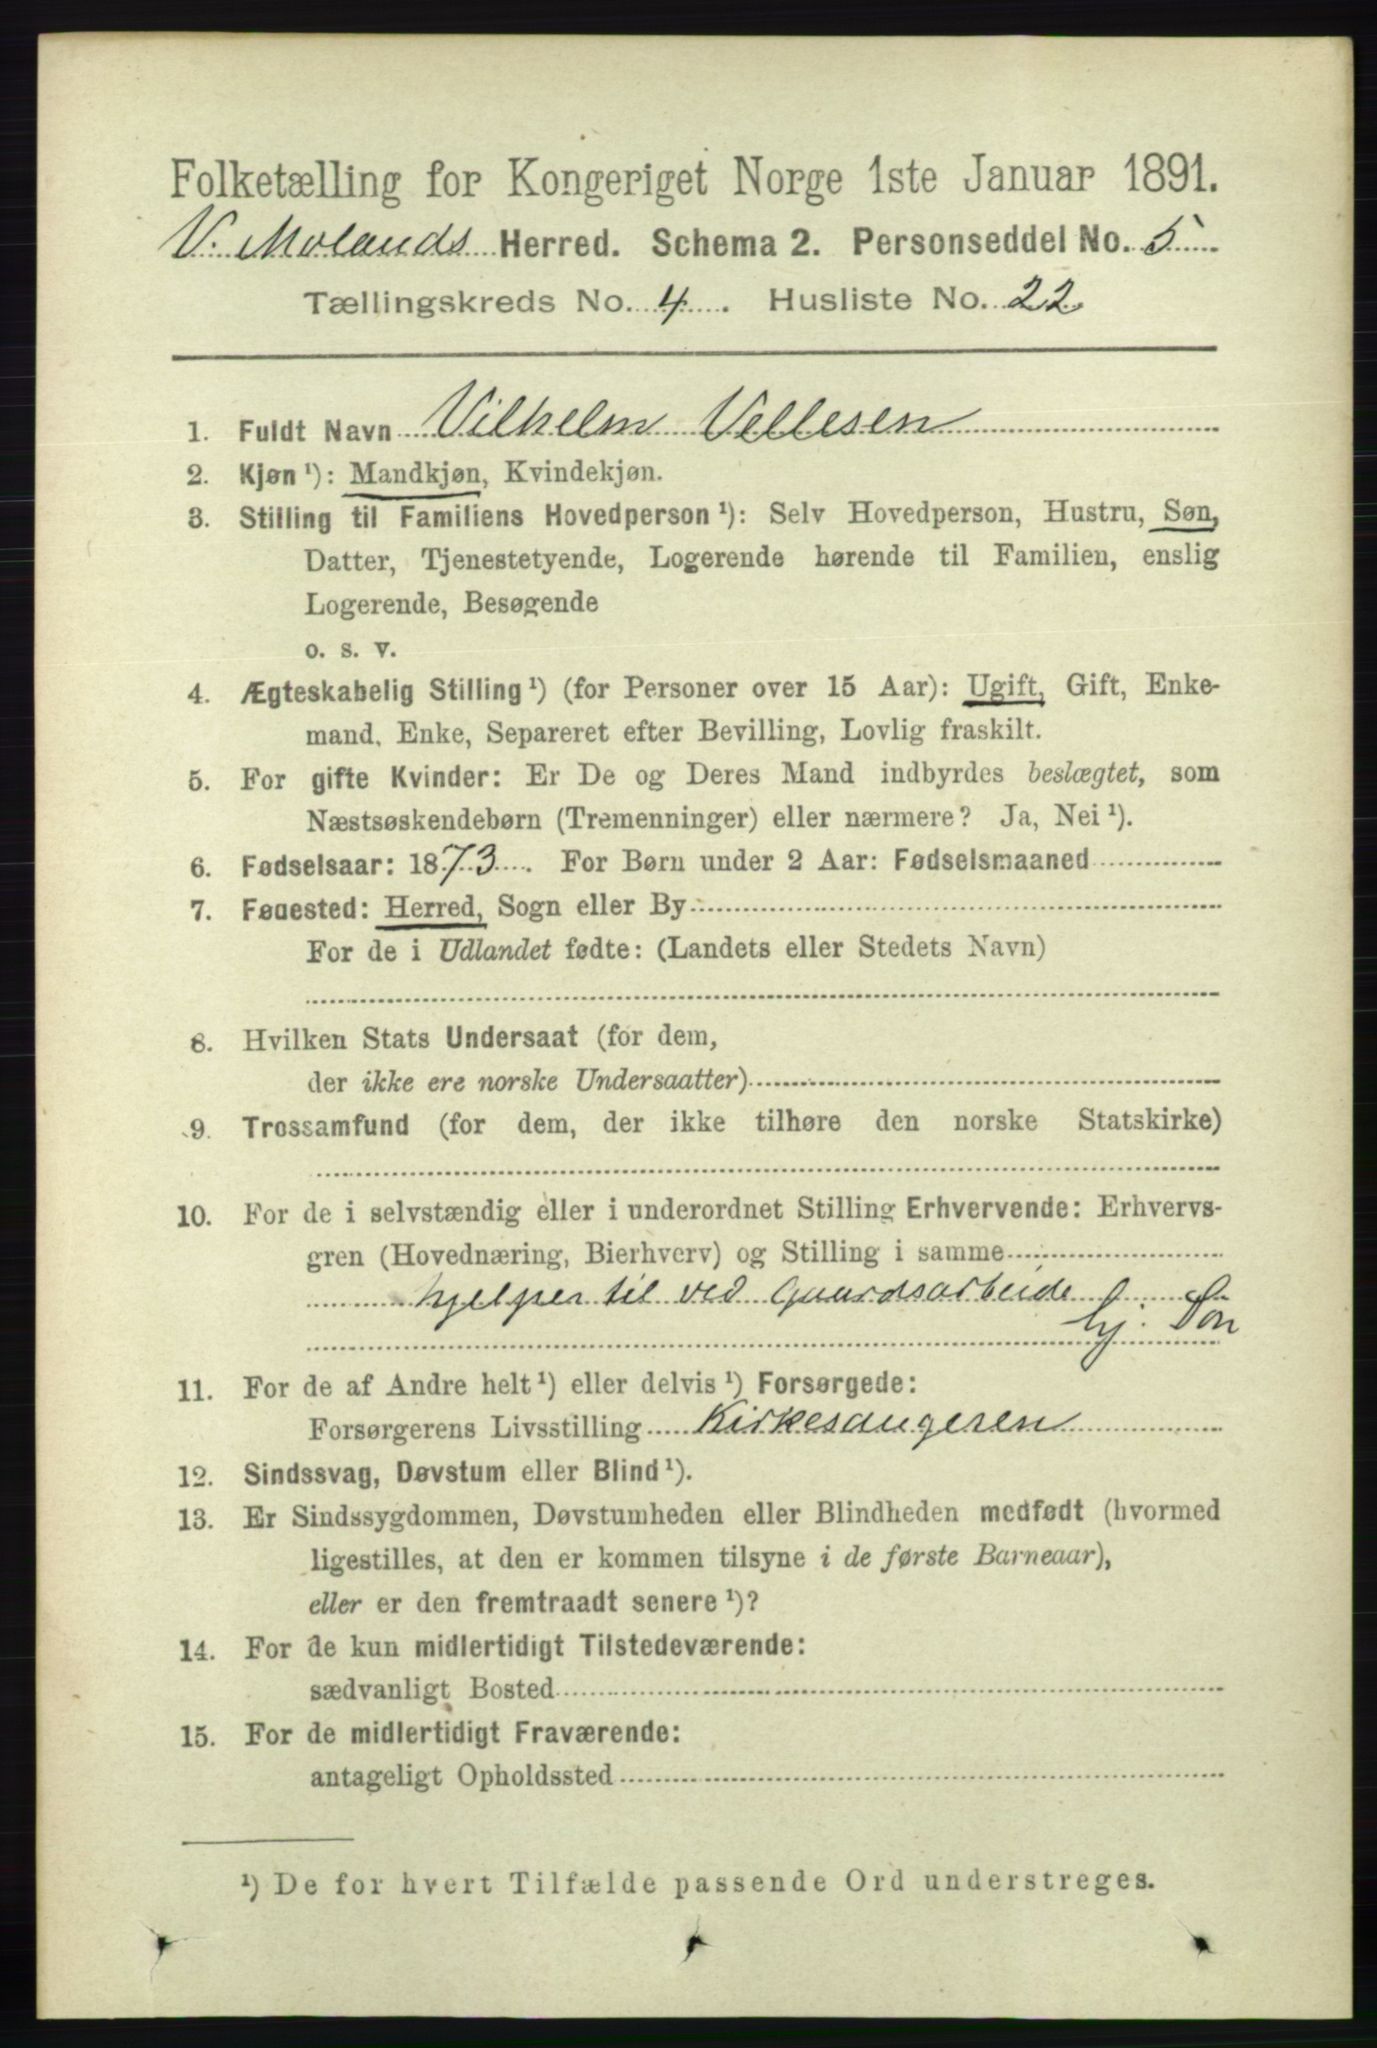 Folketælling for Kongeriget Norge 1ste Januar 1891.
V. Molands Herred. Schema 2. Personseddel No. 5
Tællingskreds No. 4. Husliste No. 22
1. Fuldt Navn Vilhelm Vellesen
2. Kjøn¹): Mandkjøn, Kvindekjøn.
3. Stilling til Familiens Hovedperson¹): Selv Hovedperson, Hustru, Søn,
Datter, Tjenestetyende, Logerende hørende til Familien, enslig
Logerende, Besøgende
o. s. v.
4. Ægteskabelig Stilling¹) (for Personer over 15 Aar): Ugift, Gift, Enke-
mand, Enke, Separeret efter Bevilling, Lovlig fraskilt.
5. For gifte Kvinder: Er De og Deres Mand indbyrdes beslægtet, som
Næstsøskendebørn (Tremenninger) eller nærmere? Ja, Nei¹).
6. Fødselsaar: 1873. For Børn under 2 Aar: Fødselsmaaned
7. Fødested: Herred, Sogn eller By
For de i Udlandet fødte: (Landets eller Stedets Navn)
8. Hvilken Stats Undersaat (for dem,
der ikke ere norske Undersaatter)
9. Trossamfund (for dem, der ikke tilhøre den norske Statskirke)
10. For de i selvstændig eller i underordnet Stilling Erhvervende: Erhvervs-
gren (Hovednæring, Bierhverv) og Stilling i samme
hjelper til ved Gaardsarbeide
hj. Søn
11. For de af Andre helt¹) eller delvis¹) Forsørgede:
Forsørgerens Livsstilling Kirkesangeren
12. Sindssvag, Døvstum eller Blind¹).
13. Er Sindssygdommen, Døvstumheden eller Blindheden medfødt (hvormed
ligestilles, at den er kommen tilsyne i de første Barneaar),
eller er den fremtraadt senere¹)?
14. For de kun midlertidigt Tilstedeværende:
sædvanligt Bosted
15. For de midlertidigt Fraværende:
antageligt Opholdssted
¹) De for hvert Tilfælde passende Ord understreges.